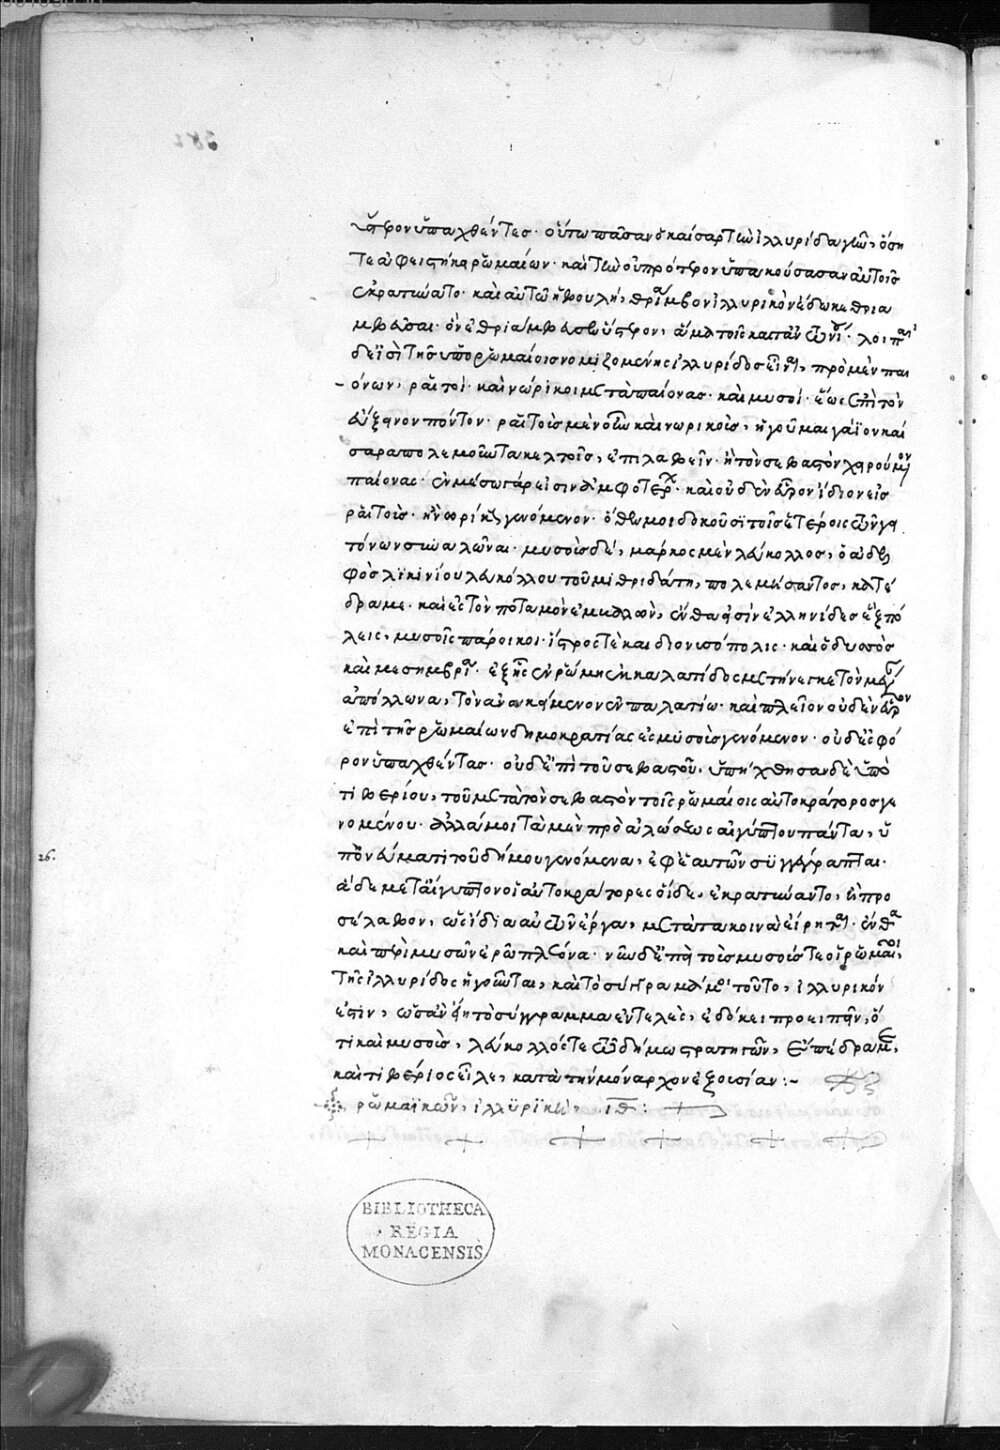 ὕστερον ὑπαχθέντες· οὕτω πᾶσαν ὁ καῖσαρ τὴν ἰλλυρίδα γῆν, ὅση
τε ἀφειστήκει ῥωμαίων· καὶ τὴν οὐ πρότερον ὑπακούσασαν αὐτοῖς
ἐκρατύνατο· καὶ αὐτῶ ἡ βουλὴ, θρίαμβον ἰλλυρικὸν ἔδωκε θρια
μβεῦσαι· ὃν ἐθριάμβευσεν ὕστερον, ἅμα τοῖς κατ' ἀντωνίου· λοιποὶ
δ' εἰσὶ τῆς ὑπὸ ῥωμαίοις νομιζομένης ἰλλυρίδος εἶναι, πρὸ μὲν παι
όνων, ῥαιτοὶ· καὶ νωρικοὶ μετὰ παίονας· καὶ μυσοὶ· ἕως ἐπὶ τὸν
εὔξεινον πόντον· ῥαιτοὺς μὲν οὖν καὶ νωρικοὺς, ἡγοῦμαι γάϊον καί
σαρα πολεμοῦντα κελτοῖς, ἐπιλαβεῖν· ἢ τὸν σεβαστὸν χειρούμενον
παίονας· ἐν μέσω γάρ εἰσιν ἀμφοτέρων· καὶ οὐδὲν εὗρον ἴδιον εἰς
ῥαιτοὺς· ἢ νωρικοὺς γενόμενον· ὅθεν μοι δοκοῦσι τοῖς ἑτέροις
τόνων συναλῶναι· μυσοὺς δὲ, μάρκος μὲν λεύκολλος, ὁ ἀδελ
φὸς λικινίου λευκόλλου τοῦ μιθριδάτη, πολεμήσαντος, κατέ
δραμε· καὶ ἐς τὸν ποταμὸν ἐμβαλὼν, ἔνθα εἰσὶν ἑλληνίδες ἓξ πό
λεις, μυσοῖς πάροικοι· ἴστρος τὲ καὶ διονυσόπολις· καὶ ὀδυσσὸς
καὶ μεσημβρία· ἐξ ἧς ἐν ῥώμης ἐκ καλάτιδος μετήνεγκε τὸν μέγαν
ἀπόλλωνα, τὸν ἀνακείμενον ἐν παλατίω· καὶ πλεῖον οὐδὲν εὗρον
ἐπὶ τῆς ῥωμαίων δημοκρατίας ἐς μυσοὺς γενόμενον· οὐδ' ἐς φό
ρον ὑπαχθέντας· οὐδ' ἐπὶ τοῦ σεβαστοῦ· ὑπήχθησαν δὲ ὑπὸ
τιβερίου, τοῦ μετὰ τὸν σεβαστὸν τοῖς ῥωμαίοις αὐτοκράτορος γε
νομένου· ἀλλά μοι τὰ μὲν πρὸ ἁλώσεως αἰγύπτου πάντα, ὑ
πὸ νεύματι τοῦ δήμου γενόμενα, ἐφ' ἑαυτῶν συγγέγραπται·
ἃ δὲ μετ' αἴγυπτον οἱ αὐτοκράτορες οἵδε, ἐκρατύναντο, ἢ προ
σέλαβον, ὡς ἴδια αὐτῶν ἔργα, μετὰ τὰ κοινὰ εἴρηται· ἔνθα
καὶ περὶ μυσῶν ἐρῶ πλείονα· νῦν δ' ἐπεὶ τοὺς μυσοὺς τε οἱ ῥωμαῖοι,
τῆς ἰλλυρίδος ἡγοῦνται, καὶ τὸ σύγγραμμά μοι τοῦτο, ἰλλυρικόν
ἐστιν, ὡς ἂν ἐντελὲς, ἐδόκει προειπεῖν, ὅ
τι καὶ μυσοὺς, λεύκολλός τε τῶ δήμω στρατηγῶν, ἐπέδραμε,
καὶ τιβέριος εἷλε, κατὰ τὴν μόναρχον ἐξουσίαν:~
ῥωμαϊκῶν, ἰλλυρικὴ, ιθ:
26.
382
BIBLIOTHECA
REGIA
MONACENSIS